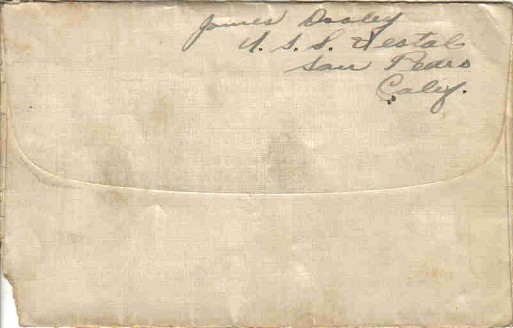 James Dooley
U. S. S. Vestal
San Pedro
Calif.